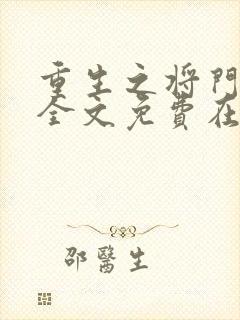 重生之将門
全文免費在
邵醫生